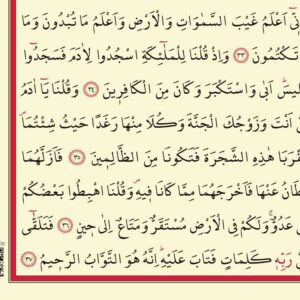 اَعْلَمُ غَيْبَ السَّمٰوَاتِ وَالْاَرْضِ وَاَعْلَمُ مَا تُبْدُونَ وَمَا
تَكْتُمُونَ ﴿٣٣﴾ وَاِذْ قُلْنَا لِلْمَلٰٓئِكَةِ اسْجُدُوا لِاٰدَمَ فَسَجَدُٓوا
اَبٰى وَاسْتَكْبَرَ وَكَانَ مِنَ الْكَافِر۪ينَ ﴿٣٤﴾ وَقُلْنَا يَٓا اٰدَمُ
اَنْتَ وَزَوْجُكَ الْجَنَّةَ وَكُلَا مِنْهَا رَغَدًا حَيْثُ شِئْتُمَا
هٰذِهِ الشَّجَرَةَ فَتَكُونَا مِنَ الظَّالِم۪ينَ ﴿٣٥﴾ فَاَزَلَّهُمَا
عَنْهَا فَاَخْرَجَهُمَا مِمَّا كَانَا ف۪يهِ وَقُلْنَا اهْبِطُوا بَعْضُكُمْ
عَدُوٌّ وَلَكُمْ فِي الْاَرْضِ مُسْتَقَرٌّ وَمَتَاعٌ اِلٰى ح۪ينٍ ﴿٣٦﴾ فَتَلَقّٰٓى
رَبِّه۪ كَلِمَاتٍ فَتَابَ عَلَيْهِ اِنَّهُ هُوَ التَّوَّابُ الرَّح۪يمُ ﴿٣٧﴾